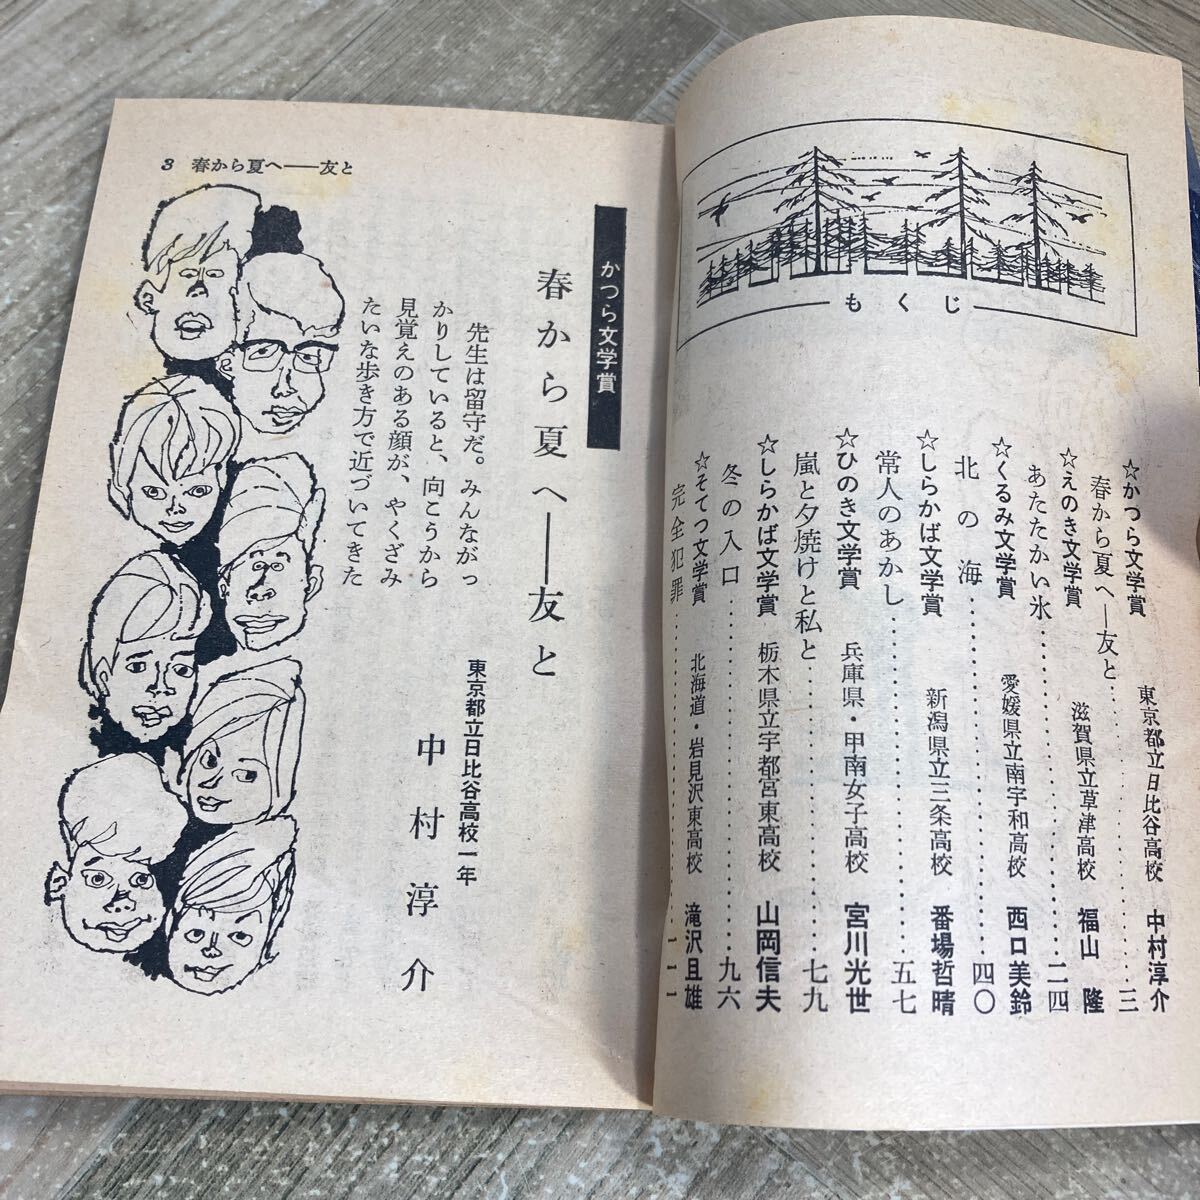 もくじ
☆かつら文学賞　東京都立日比谷高校　中村淳介
春から夏へ――友と……………三
☆えのき文学賞　滋賀県立草津高校　福山　隆
あたたかい氷……………二四
☆くるみ文学賞　愛媛県立南宇和高校　西口美鈴
北の海……………四〇
☆しらかば文学賞　新潟県立三条高校　番場哲晴
常人のあかし……………五七
☆ひのき文学賞　兵庫県・甲南女子高校　宮川光世
嵐と夕焼けと私と……………七九
☆しらかば文学賞　栃木県立宇都宮東高校　山岡信夫
冬の入口……………九六
☆そてつ文学賞　北海道・岩見沢東高校　滝沢且雄
完全犯罪……………一一一
3　春から夏へ――友と
かつら文学賞
春から夏へ――友と
東京都立日比谷高校一年
中村淳介
先生は留守だ。みんながっ
かりしていると、向こうから
見覚えのある顔が、やくざみ
たいな歩き方で近づいてきた